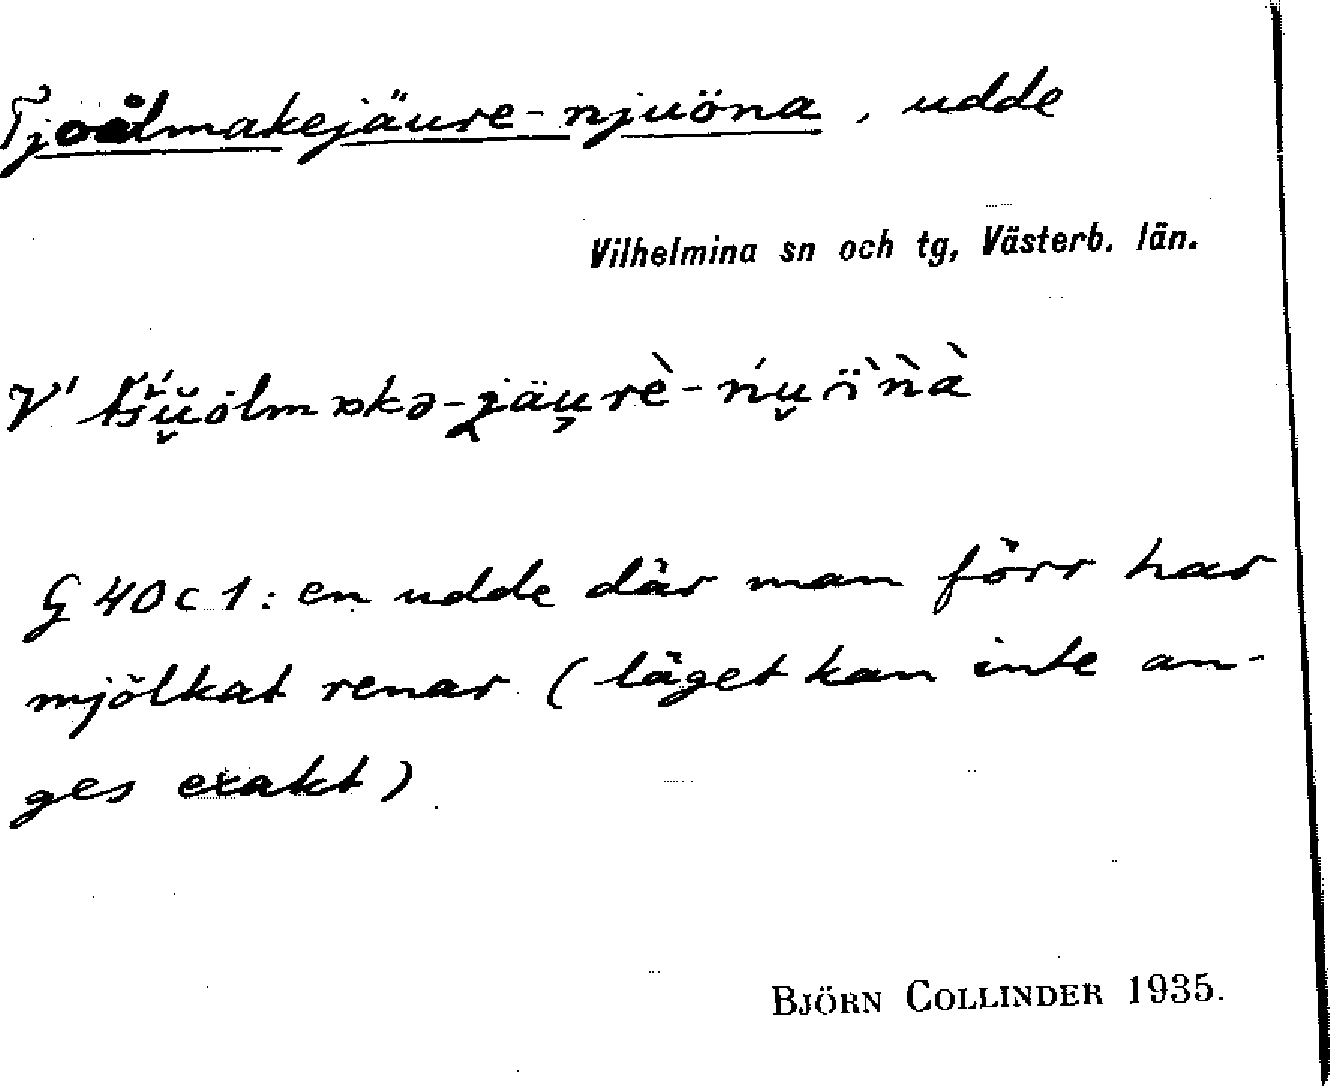 Tjoålmakejäure-njuöna, udde
Vilhelmina sn och tg, Västerb. län.
V'
G 40 c 1: en udde där man förr har
mjölkat renar (läget kan inte an-
ges exakt)
BJÖRN COLLINDER 1935.